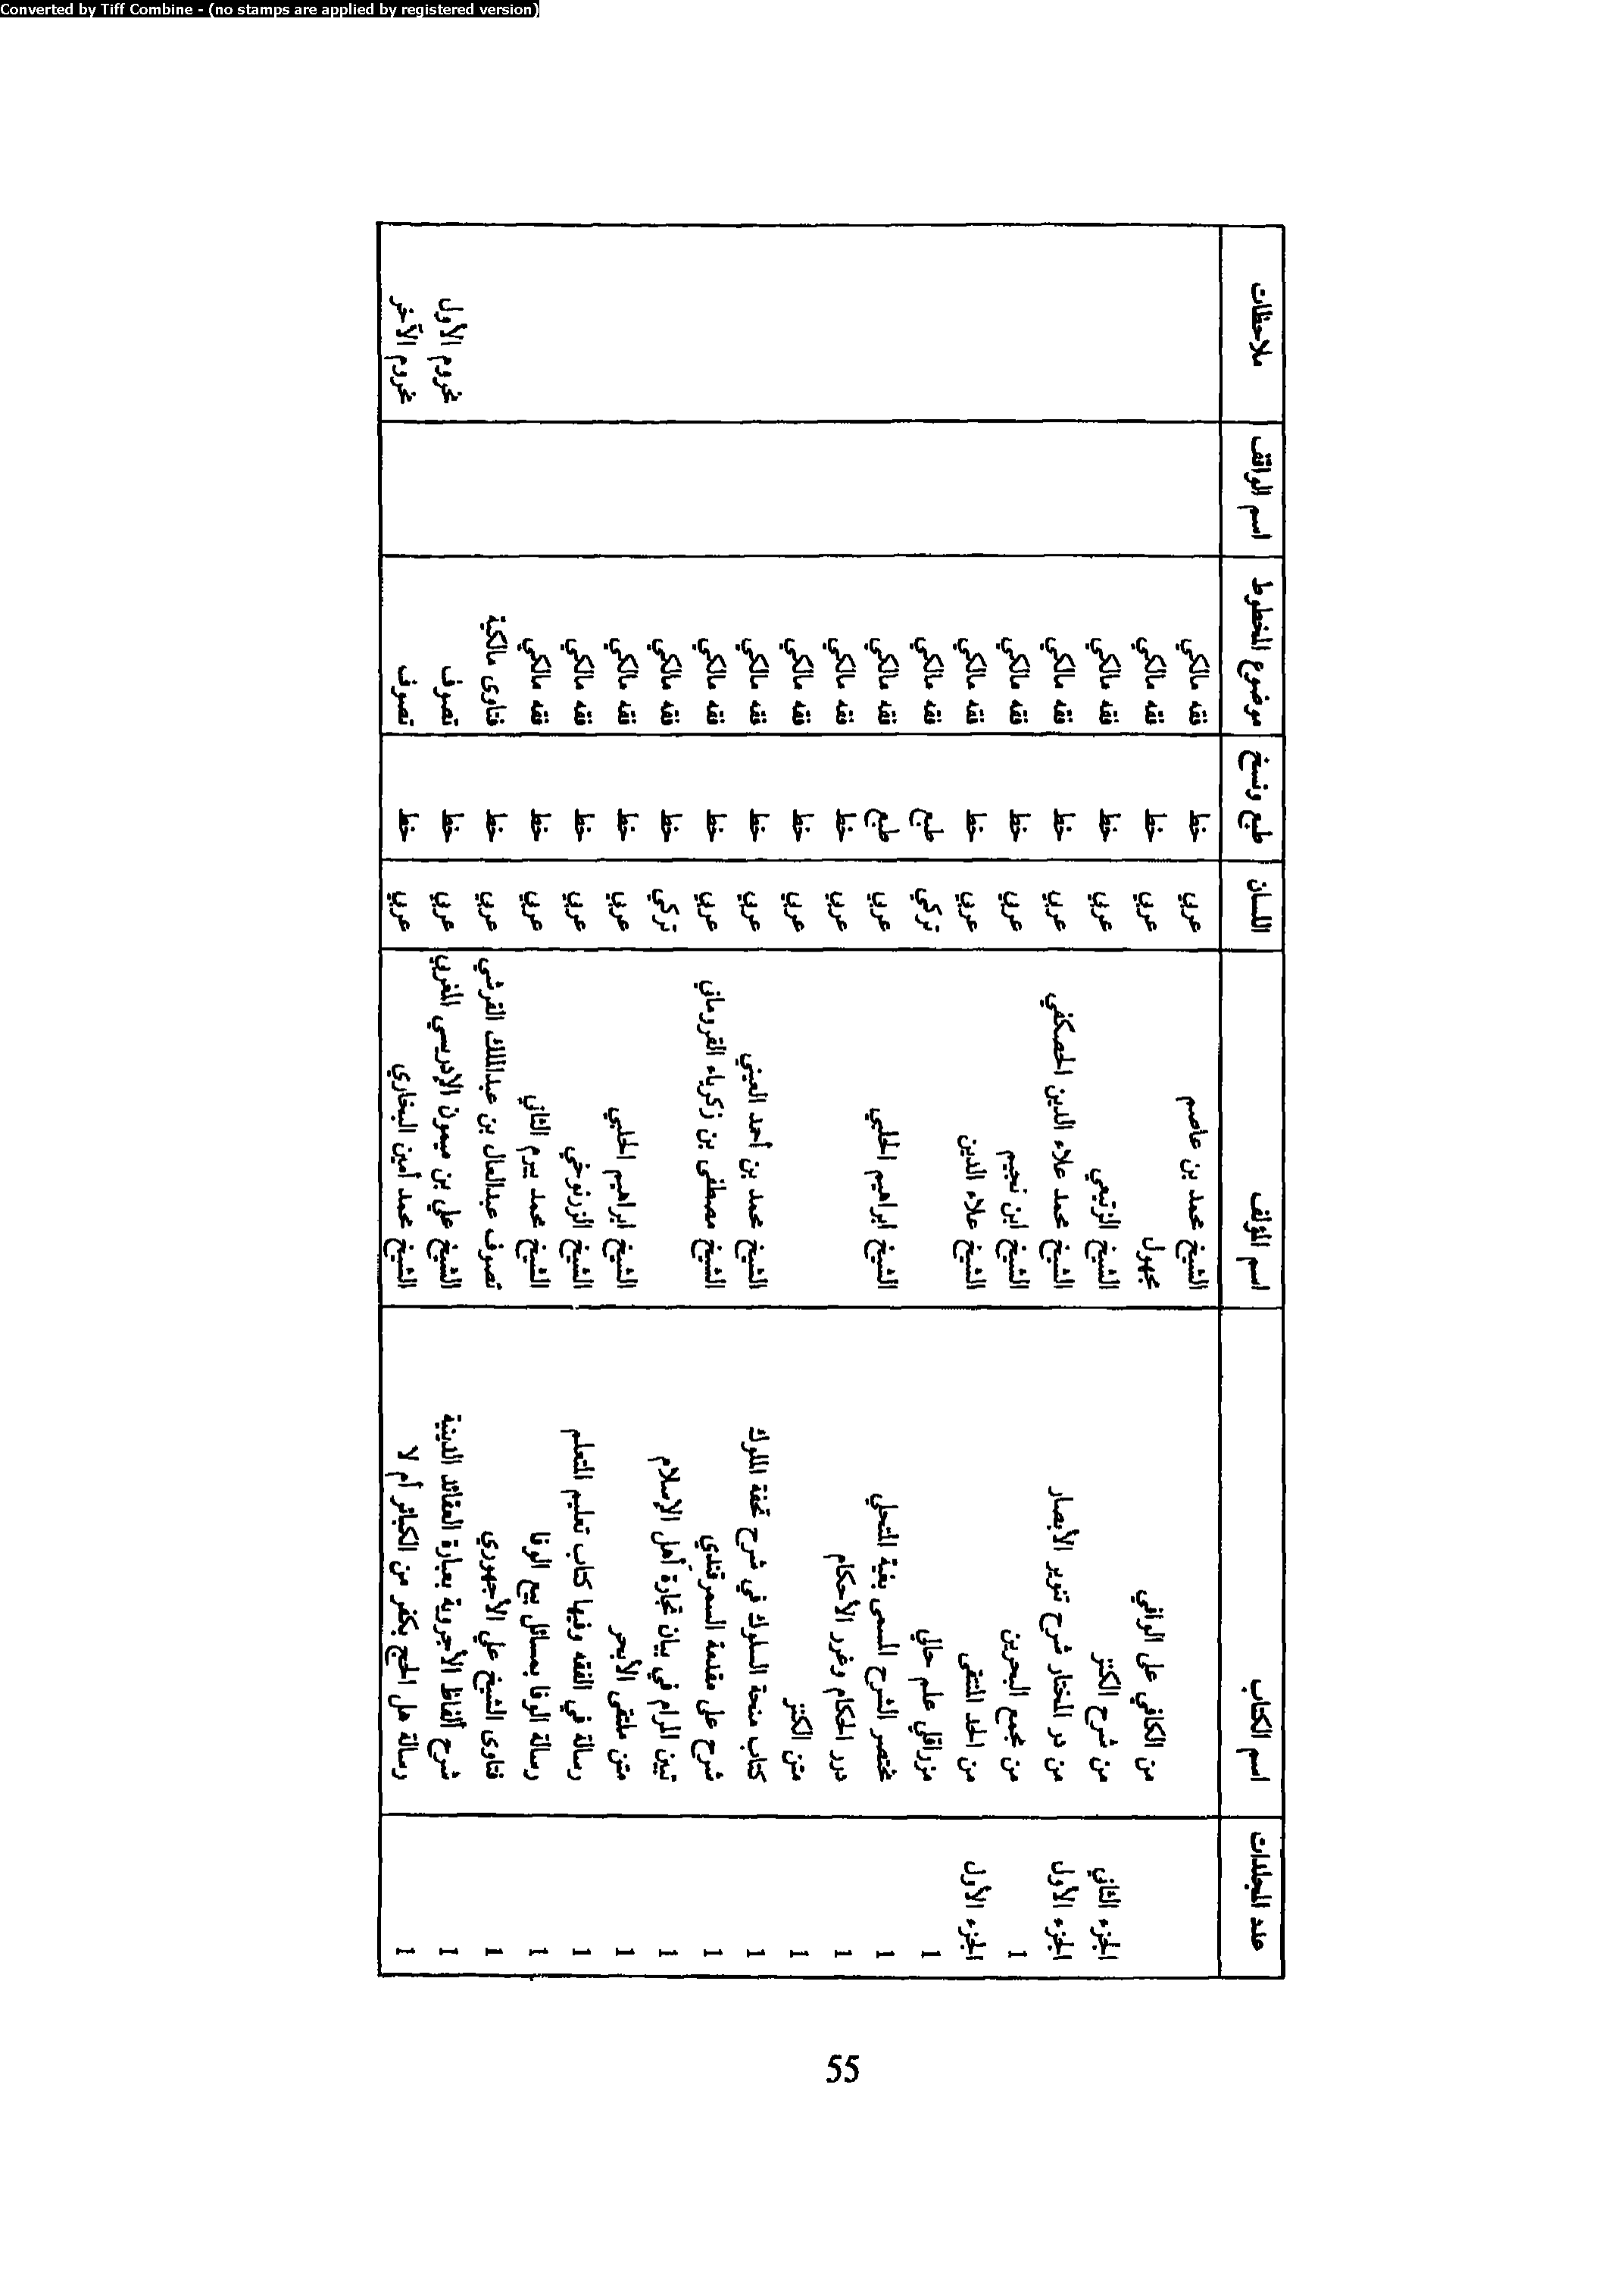 Converted by Tiff Combine - (no stamps are applied by registered version)
عدد المجلدات اسم الكتاب اسم المؤلف اللسان طبع ونسخ موضوع المخطوط اسم الواقف ملاحظات
الشيخ محمد بن عاصم عربي خط فقه مالكي
من الكافي على الوافي مجهول عربي خط فقه مالكي
الجزء الثاني من شرح الكنز الشيخ الزتيعي عربي خط فقه مالكي
الجزء الأول من در المختار شرح تنوير الأبصار الشيخ محمد علاء الدين الحصكفي عربي خط فقه مالكي
1 من مجمع البحرين الشيخ ابن نجيم عربي خط فقه مالكي
الجزء الأول من الحد المنتقى الشيخ علاء الدين عربي خط فقه مالكي
1 مزراقلي علم حالي تركي طبع فقه مالكي
1 مختصر الشرح المسمى بغية المتحلي الشيخ ابراهيم الحلبي عربي طبع فقه مالكي
1 درر الحكام وغرر الأحكام عربي خط فقه مالكي
1 متن الكنز عربي خط فقه مالكي
1 كتاب منحة السلوك في شرح تحفة الملوك الشيخ محمد بن أحمد العيني عربي خط فقه مالكي
1 شرح على مقدمة السمرقندي الشيخ مصطفى بن زكرياء القروماني عربي خط فقه مالكي
1 تبين المرام في بيان تجارة أهل الإسلام تركي خط فقه مالكي
1 متن ملتقى الأبحر الشيخ ابراهيم الحلبي عربي خط فقه مالكي
1 رسالة في الفقه وفيها كتاب تعليم المتعلم الشيخ الزرنوخي عربي خط فقه مالكي
1 رسالة الوفا بمسائل بيع الوفا الشيخ محمد بيرم الثاني عربي خط فقه مالكي
1 فتاوى الشيخ علي الأجهوري تصوف عبدالعال بن عبدالملك القرشي عربي خط فتاوى مالكية
1 شرح ألفاظ الأجروبة بعبارة العقائد الدينية الشيخ علي بن ميمون الإدريسي المغربي عربي خط تصوف مخروم الأول
1 رسالة هل الحج يكفر من الكبائر أم لا الشيخ محمد أمين البخاري عربي خط تصوف مخروم الآخر
55